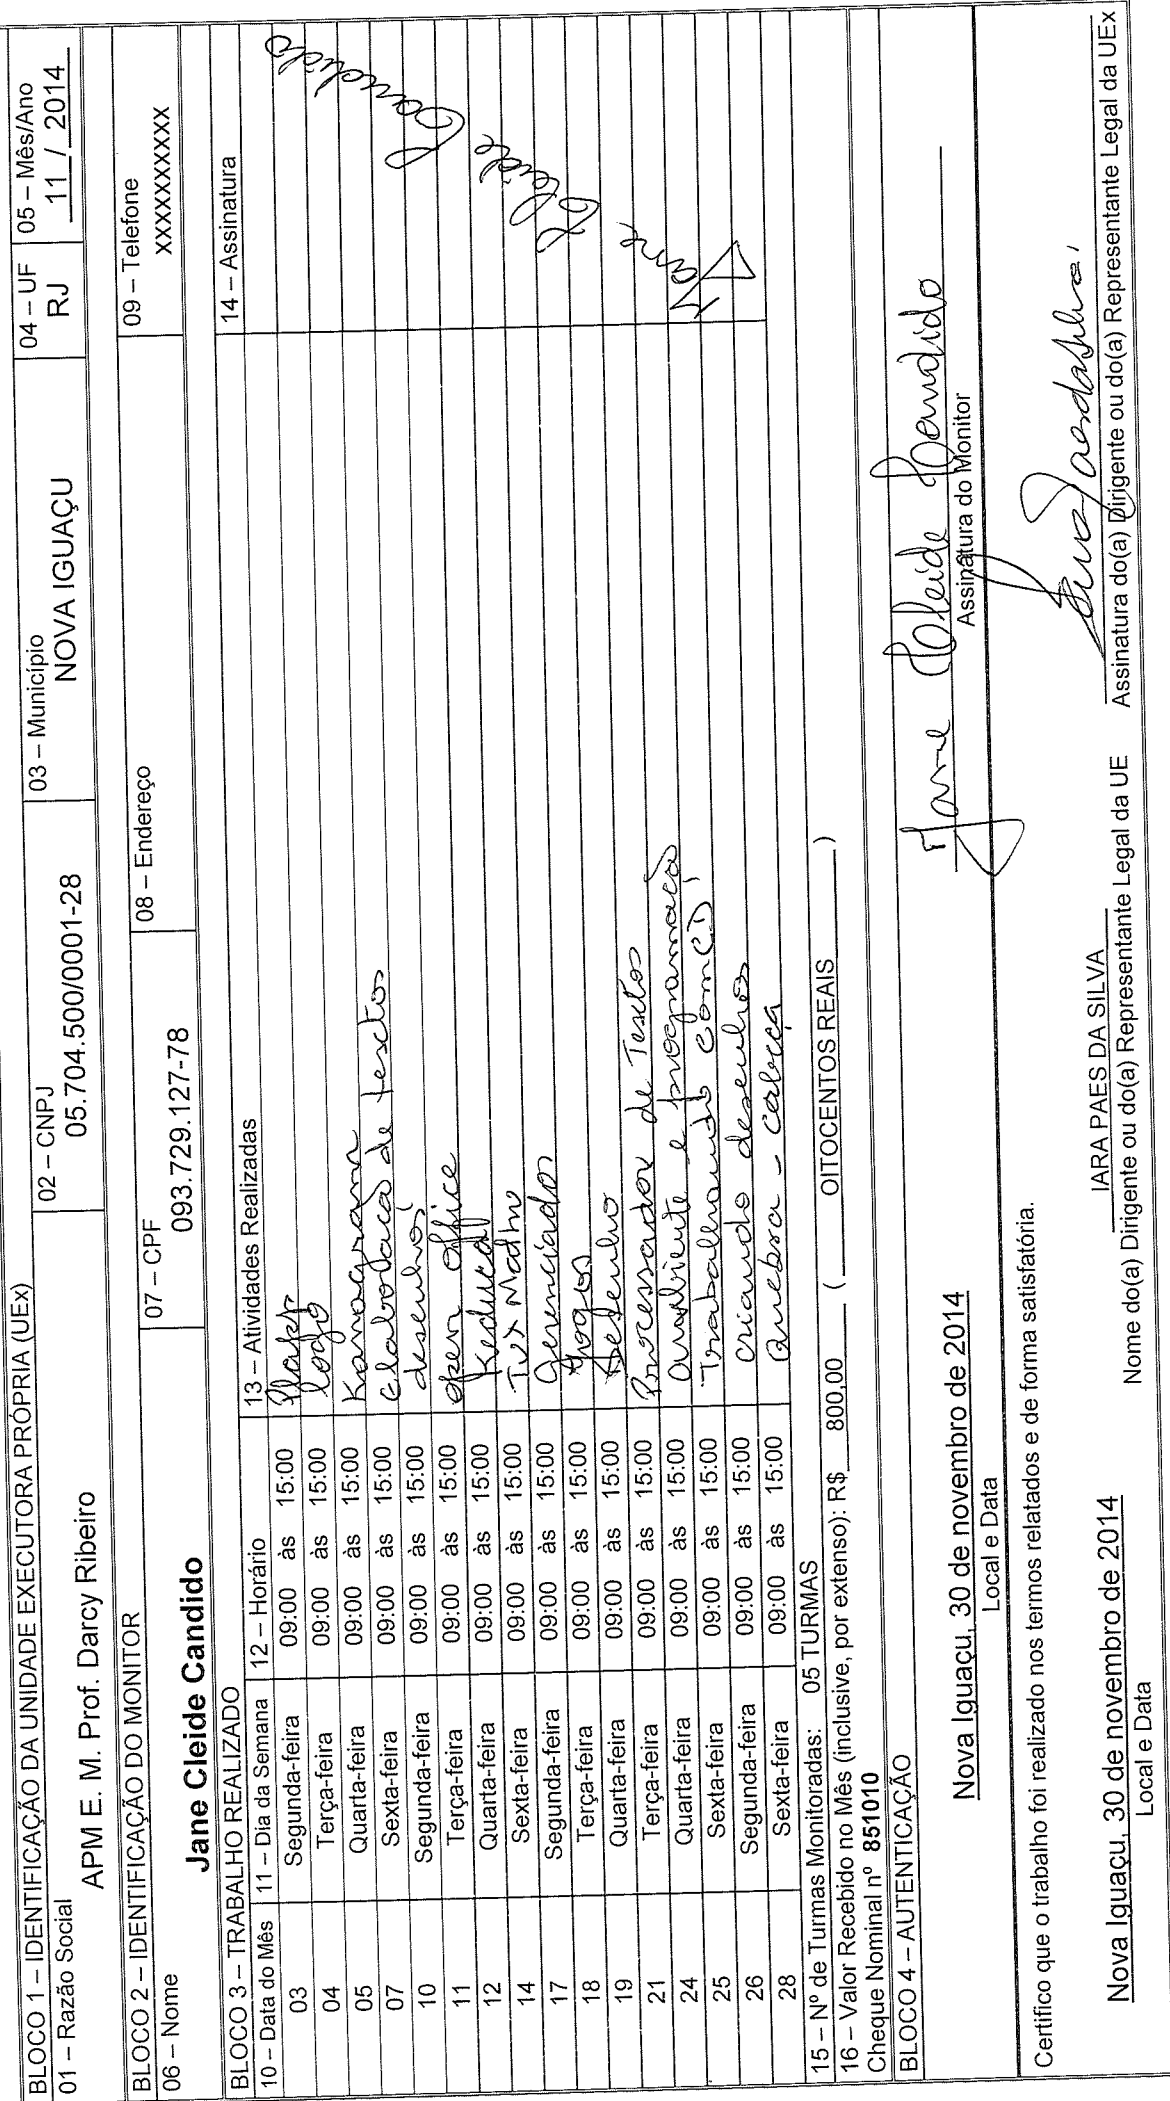 BLOCO 1 – IDENTIFICAÇÃO DA UNIDADE EXECUTORA PRÓPRIA (UEx)
01 – Razão Social 02 – CNPJ 03 – Município 04 – UF 05 – Mês/Ano
APM E. M. Prof. Darcy Ribeiro 05.704.500/0001-28 NOVA IGUAÇU RJ 11 / 2014
BLOCO 2 – IDENTIFICAÇÃO DO MONITOR
06 – Nome 07 – CPF 08 – Endereço 09 – Telefone
Jane Cleide Candido 093.729.127-78 xxxxxxxxxx
BLOCO 3 – TRABALHO REALIZADO
10 – Data do Mês 11 – Dia da Semana 12 – Horário 13 – Atividades Realizadas 14 – Assinatura
03 Segunda-feira 09:00 às 15:00
04 Terça-feira 09:00 às 15:00 logo
05 Quarta-feira 09:00 às 15:00 Kanagram
07 Sexta-feira 09:00 às 15:00 elaboração de textos
10 Segunda-feira 09:00 às 15:00 desenhos
11 Terça-feira 09:00 às 15:00 open office
12 Quarta-feira 09:00 às 15:00 Keduca
14 Sexta-feira 09:00 às 15:00 Tux Math
17 Segunda-feira 09:00 às 15:00 Gerenciador
18 Terça-feira 09:00 às 15:00 Jogos
19 Quarta-feira 09:00 às 15:00 Desenho
21 Terça-feira 09:00 às 15:00 Processador de Textos
24 Quarta-feira 09:00 às 15:00 Ambiente e programação
25 Sexta-feira 09:00 às 15:00 Trabalhando com CD
26 Segunda-feira 09:00 às 15:00 criando desenhos
28 Sexta-feira 09:00 às 15:00 Quebra - cabeça
Jane Cleide Candido
15 – Nº de Turmas Monitoradas: 05 TURMAS
16 – Valor Recebido no Mês (inclusive, por extenso): R$ 800,00 ( OITOCENTOS REAIS )
Cheque Nominal nº 851010
BLOCO 4 – AUTENTICAÇÃO
Nova Iguaçu, 30 de novembro de 2014 Jane Cleide Candido
Local e Data Assinatura do Monitor
Certifico que o trabalho foi realizado nos termos relatados e de forma satisfatória.
Nova Iguaçu, 30 de novembro de 2014 IARA PAES DA SILVA Iara Paes da Silva
Local e Data Nome do(a) Dirigente ou do(a) Representante Legal da UE Assinatura do(a) Dirigente ou do(a) Representante Legal da UEx